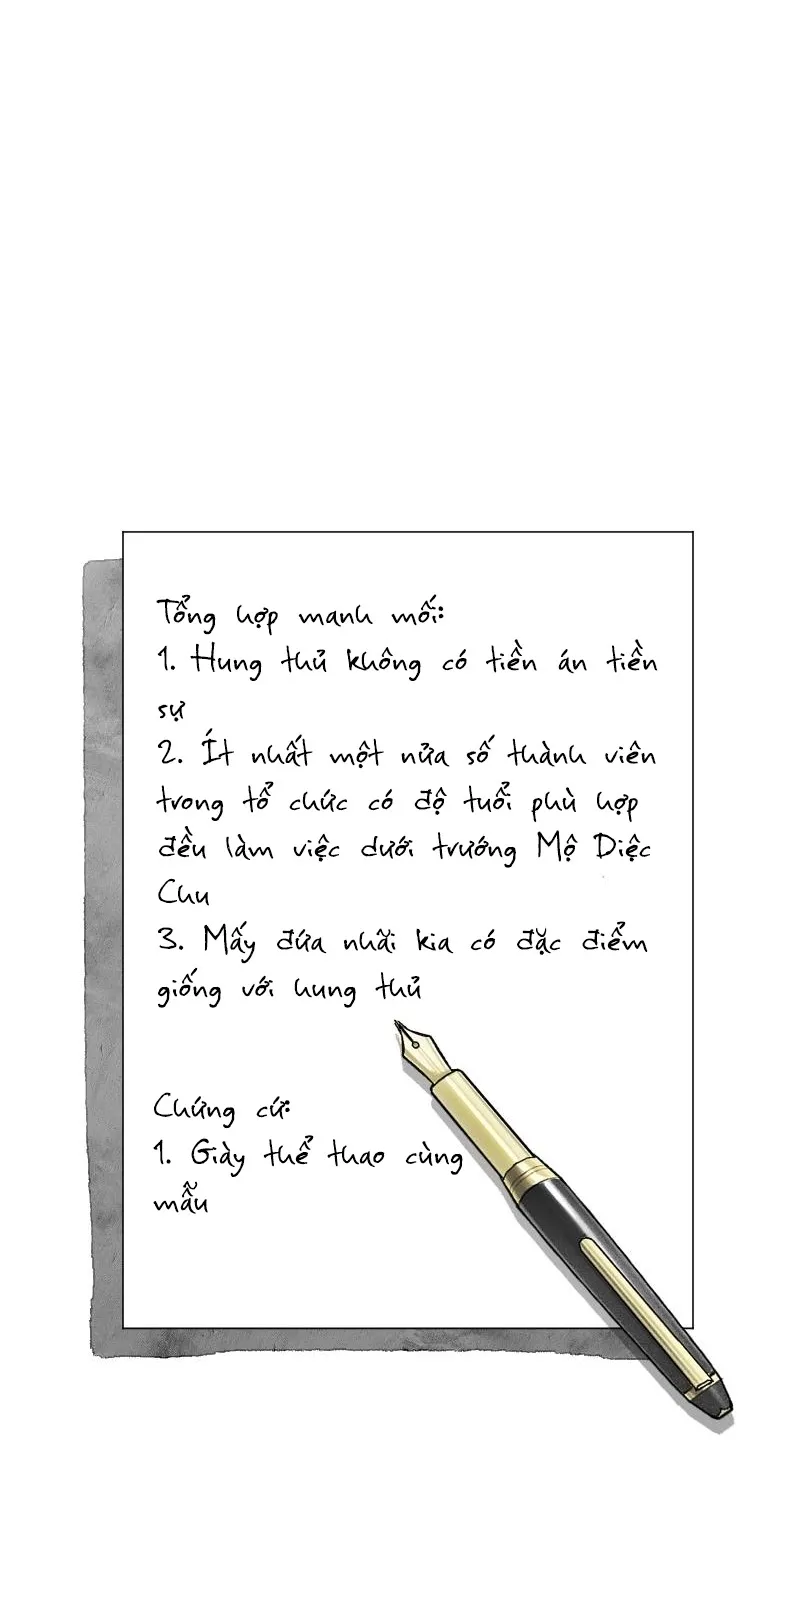 Tổng hợp manh mối:
1. Hung thủ không có tiền án tiền
sự
2. Ít nhất một nửa số thành viên
trong tổ chức có độ tuổi phù hợp
đều làm việc dưới trướng Mộ Diệc
Chu
3. Mấy đứa nhãi kia có đặc điểm
giống với hung thủ
Chứng cứ:
1. Giày thể thao cùng
mẫu